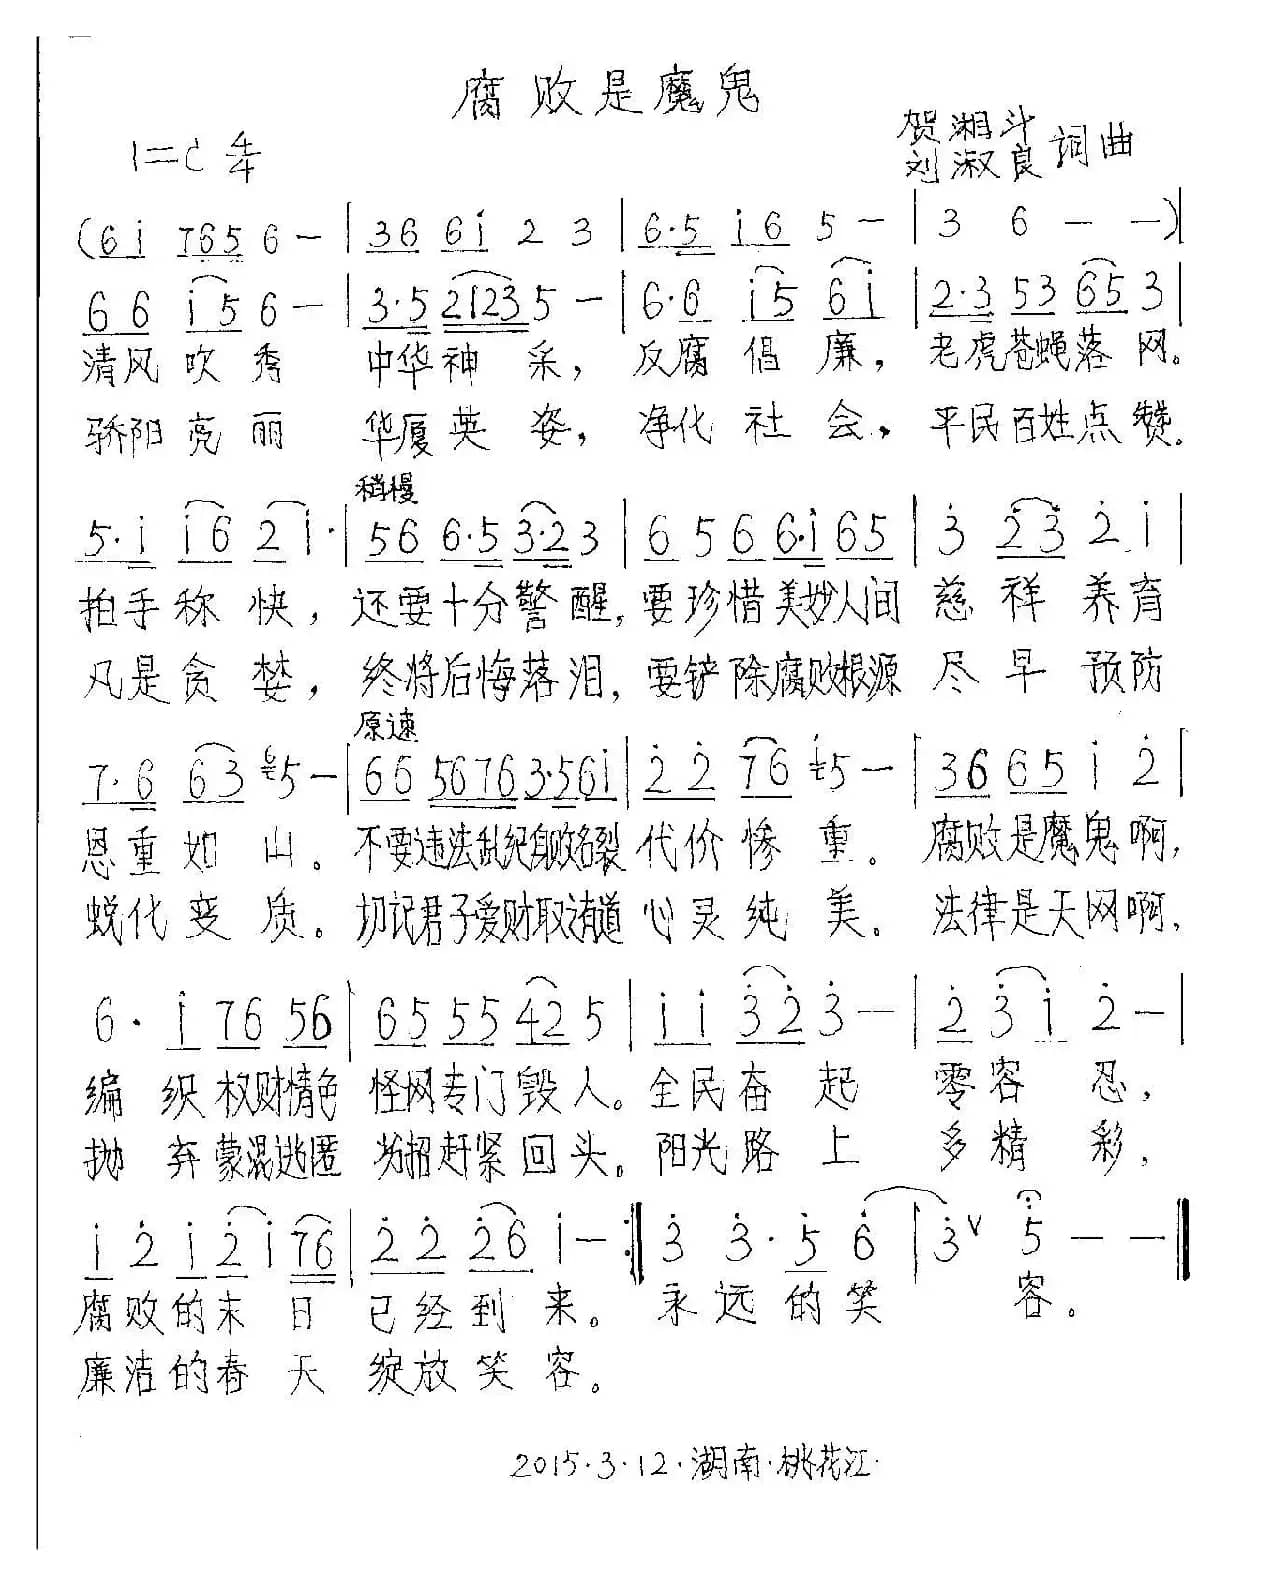 腐败是魔鬼
1=C 4/4
贺湘斗
刘淑良 词曲
(6i 765 6 - | 36 6i 2 3 | 6·5 i6 5 - | 3 6 - - )|
66 i5 6 - | 3·5 2123 5 - | 6·6 i5 6i | 2·3 53 65 3 |
清风吹秀 中华神采，反腐倡廉，老虎苍蝇落网。
骄阳亮丽 华厦英姿，净化社会，平民百姓点赞。
稍慢
5·i i6 2 i· | 56 6·5 3·2 3 | 6 5 6 6·i 65 | 3 23 2 i |
拍手称快，还要十分警醒，要珍惜美妙人间 慈祥养育
凡是贪婪，终将后悔落泪，要铲除腐败根源 尽早预防
原速
7·6 63 5 - | 66 5676 3·56i | 2 2 76 5 - | 36 65 i 2 |
恩重如山。不要违法乱纪身败名裂 代价惨重。腐败是魔鬼啊，
蜕化变质。切记君子爱财取之有道 心灵纯美。法律是天网啊，
6· i 76 56 | 65 55 42 5 | i i 32 3 - | 2 3 i 2 - |
编织权财情色 怪网专门毁人。全民奋起 零容忍，
抛弃蒙混逃匿 歪招赶紧回头。阳光路上 多精彩，
i 2 i 2 i 76 | 2 2 26 i - :| 3 3· 5 6 | 3 ∨ 5 - - ‖
腐败的末日 已经到来。永远的笑 容。
廉洁的春天 绽放笑容。
2015·3·12·湖南·桃花江·